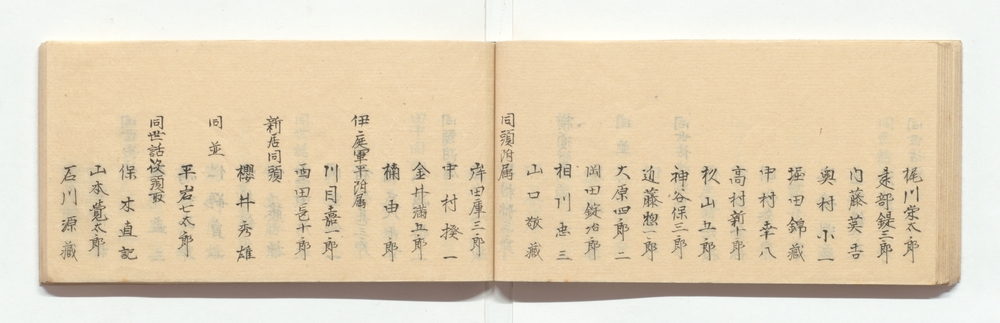 梶川栄太郎
建部鍉三郎
内藤英吾
奥村小一
堀田錦蔵
中村幸八
高村新十郎
杉山五郎
神谷保三郎
近藤惣一郎
大原四郎二
岡田錠治郎
相川忠三
山口敬蔵
同頭附属
岸田庫三郎
中村揆一
金井満五郎
楠由郎
伊庭軍平附属
川目嘉一郎
西田邑十郎
新居同頭
櫻井秀雄
同並
平岩七太郎
同世話役頭取
保木直記
山本覚太郎
石川源蔵